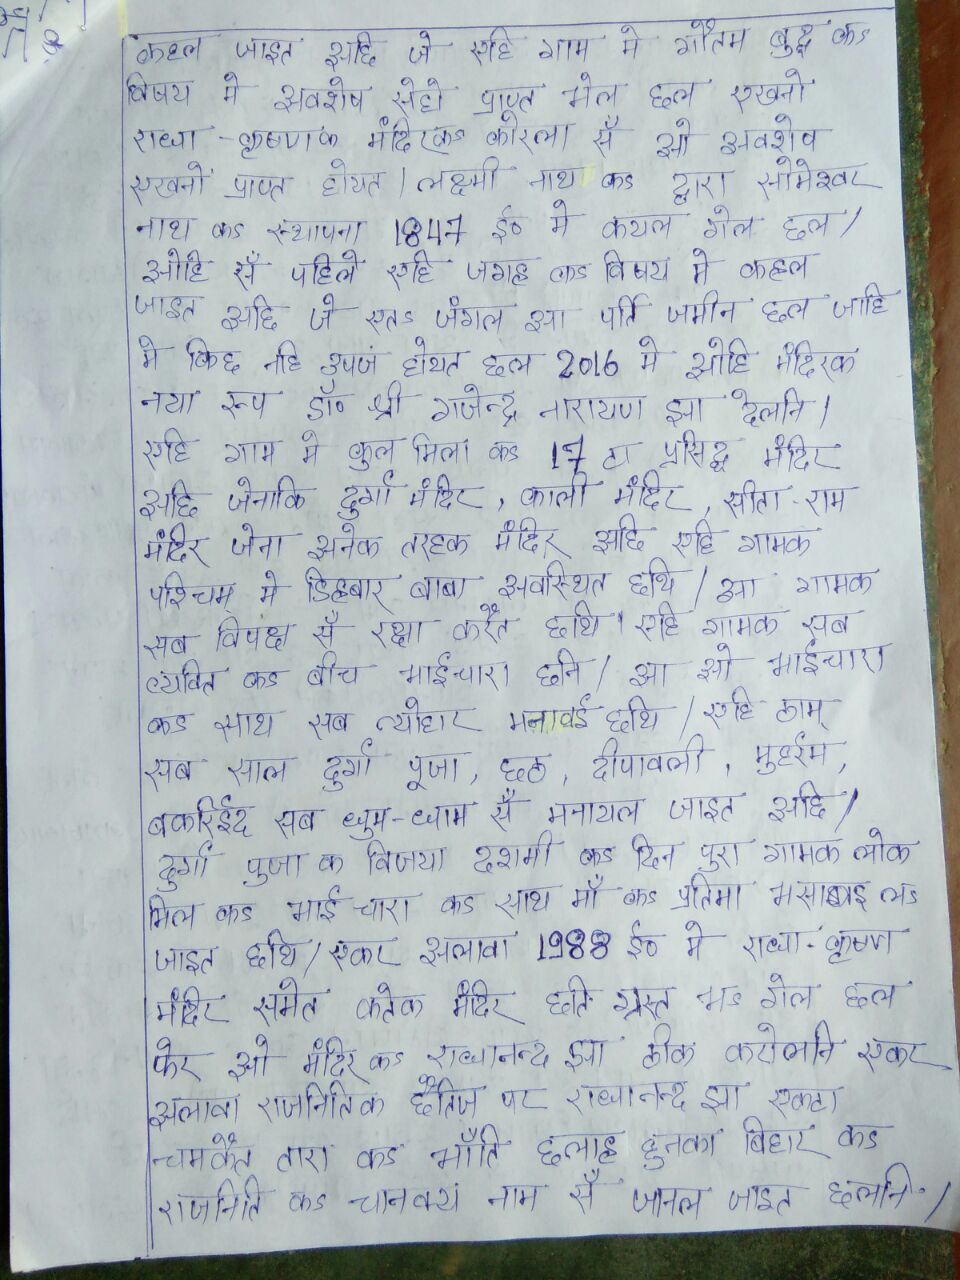 कहल जाइत अछि जे एहि गाम मे गौतम बुद्ध कऽ
विषय मे अवशेष सेहो प्राप्त भेल छल एखनो
राधा-कृष्णक मंदिरकऽ कोरला सँ ओ अवशेष
एखनो प्राप्त होयत / लक्ष्मी नाथ कऽ द्वारा सोमेश्वर
नाथ कऽ स्थापना 1847 ई० मे कयल गेल छल /
ओहि सँ पहिले एहि जगह कऽ विषय मे कहल
जाइत अछि जे एतऽ जंगल आ पर्ति जमीन छल जाहि
मे किछ नहि उपज होयत छल 2016 मे ओहि मंदिरक
नया रूप डॉ० श्री गजेन्द्र नारायण झा देलनि /
एहि गाम मे कुल मिला कऽ 17 टा प्रसिद्ध मंदिर
अछि जेनाकि दुर्गा मंदिर, काली मंदिर, सीता-राम
मंदिर जेना अनेक तरहक मंदिर अछि एहि गामक
पश्चिम मे डिहबार बाबा अवस्थित छथि / आ गामक
सब विपक्ष सँ रक्षा करैत छथि। एहि गामक सब
व्यक्ति कऽ बीच भाईचारा छनि / आ ओ भाईचारा
कऽ साथ सब त्योहार मनावई छथि / एहि ठाम्
सब साल दुर्गा पूजा, छठ, दीपावली, मुहर्रम,
बकरिईद सब धुम-धाम सँ मनायल जाइत अछि /
दुर्गा पुजा क विजया दशमी कऽ दिन पुरा गामक लोक
मिल कऽ भाईचारा कऽ साथ माँ कऽ प्रतिमा लऽ
जाइत छथि / एकर अलावा 1988 ई० मे राधा-कृष्ण
मंदिर समेत कतेक मंदिर छति ग्रस्त भऽ गेल छल
फेर ओ मंदिर कऽ राधानन्द झा ठीक करौलनि एकर
अलावा राजनितिक छैतिज पर राधानन्द झा एकटा
चमकैत तारा कऽ भाँति छलाह हुनका बिहार कऽ
राजनिति कऽ चानक्य नाम सँ जानल जाइत छलनि /